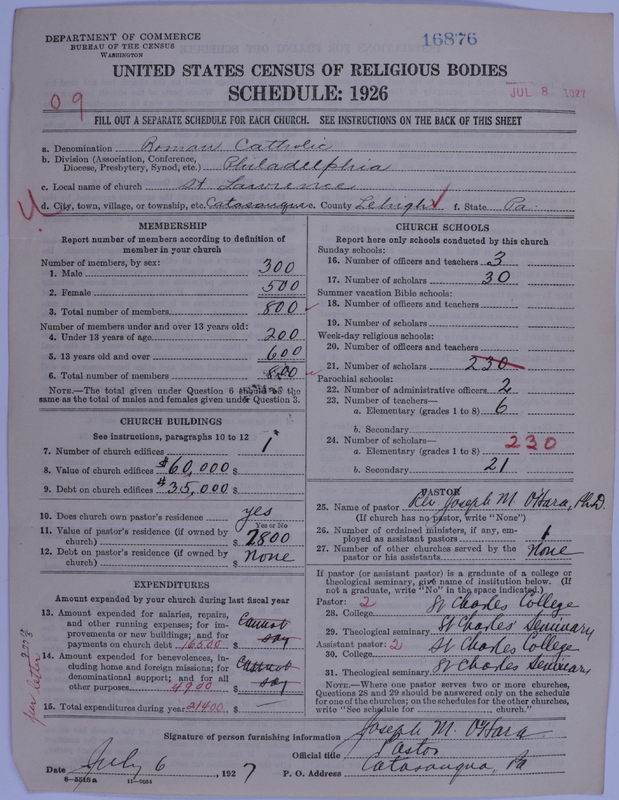 DEPARTMENT OF COMMERCE
BUREAU OF THE CENSUS
WASHINGTON
16876
UNITED STATES CENSUS OF RELIGIOUS BODIES
SCHEDULE: 1926
JUL 8 1927
09
FILL OUT A SEPARATE SCHEDULE FOR EACH CHURCH. SEE INSTRUCTIONS ON THE BACK OF THIS SHEET
a. Denomination Roman Catholic
b. Division (Association, Conference, Diocese, Presbytery, Synod, etc.) Philadelphia
c. Local name of church St Lawrence
d. City, town, village, or township, etc. Catasauqua e. County Lehigh f. State Pa
MEMBERSHIP
Report number of members according to definition of
member in your church
Number of members, by sex:
1. Male 300
2. Female 500
3. Total number of members 800
Number of members under and over 13 years old:
4. Under 13 years of age 200
5. 13 years old and over 600
6. Total number of members 800
NOTE.—The total given under Question 6 should be the
same as the total of males and females given under Question 3.
CHURCH BUILDINGS
See instructions, paragraphs 10 to 12
7. Number of church edifices 1
8. Value of church edifices $60,000 $
9. Debt on church edifices $35,000 $
10. Does church own pastor's residence yes
Yes or No
11. Value of pastor's residence (if owned by
church) $ 7800
12. Debt on pastor's residence (if owned by
church) $ None
EXPENDITURES
Amount expended by your church during last fiscal year
13. Amount expended for salaries, repairs,
and other running expenses; for im-
provements or new buildings; and for
payments on church debt 16500 $ Cannot say
14. Amount expended for benevolences, in-
cluding home and foreign missions; for
denominational support; and for all
other purposes 4900 $ Cannot say
15. Total expenditures during year 21400 $ —
per letter
CHURCH SCHOOLS
Report here only schools conducted by this church
Sunday schools:
16. Number of officers and teachers 3
17. Number of scholars 30
Summer vacation Bible schools:
18. Number of officers and teachers
19. Number of scholars
Week-day religious schools:
20. Number of officers and teachers
21. Number of scholars 230
Parochial schools:
22. Number of administrative officers 2
23. Number of teachers—
a. Elementary (grades 1 to 8) 6
b. Secondary
24. Number of scholars—
a. Elementary (grades 1 to 8) 230
b. Secondary 21
PASTOR
25. Name of pastor Rev Joseph M. O'Hara, Ph.D.
(If church has no pastor, write "None")
26. Number of ordained ministers, if any, em-
ployed as assistant pastors 1
27. Number of other churches served by the
pastor or his assistants None
If pastor (or assistant pastor) is a graduate of a college or
theological seminary, give name of institution below. (If
not a graduate, write "No" in the space indicated.)
Pastor: 2
28. College St Charles College
29. Theological seminary St Charles' Seminary
Assistant pastor: 2
30. College St Charles College
31. Theological seminary St Charles Seminary
NOTE.—Where one pastor serves two or more churches,
Questions 28 and 29 should be answered only on the schedule
for one of the churches; on the schedules for the other churches,
write "See schedule for church."
Signature of person furnishing information Joseph M. O'Hara
Official title Pastor
Date July 6, 1927 P. O. Address Catasauqua, Pa
8—5518a 11—9554